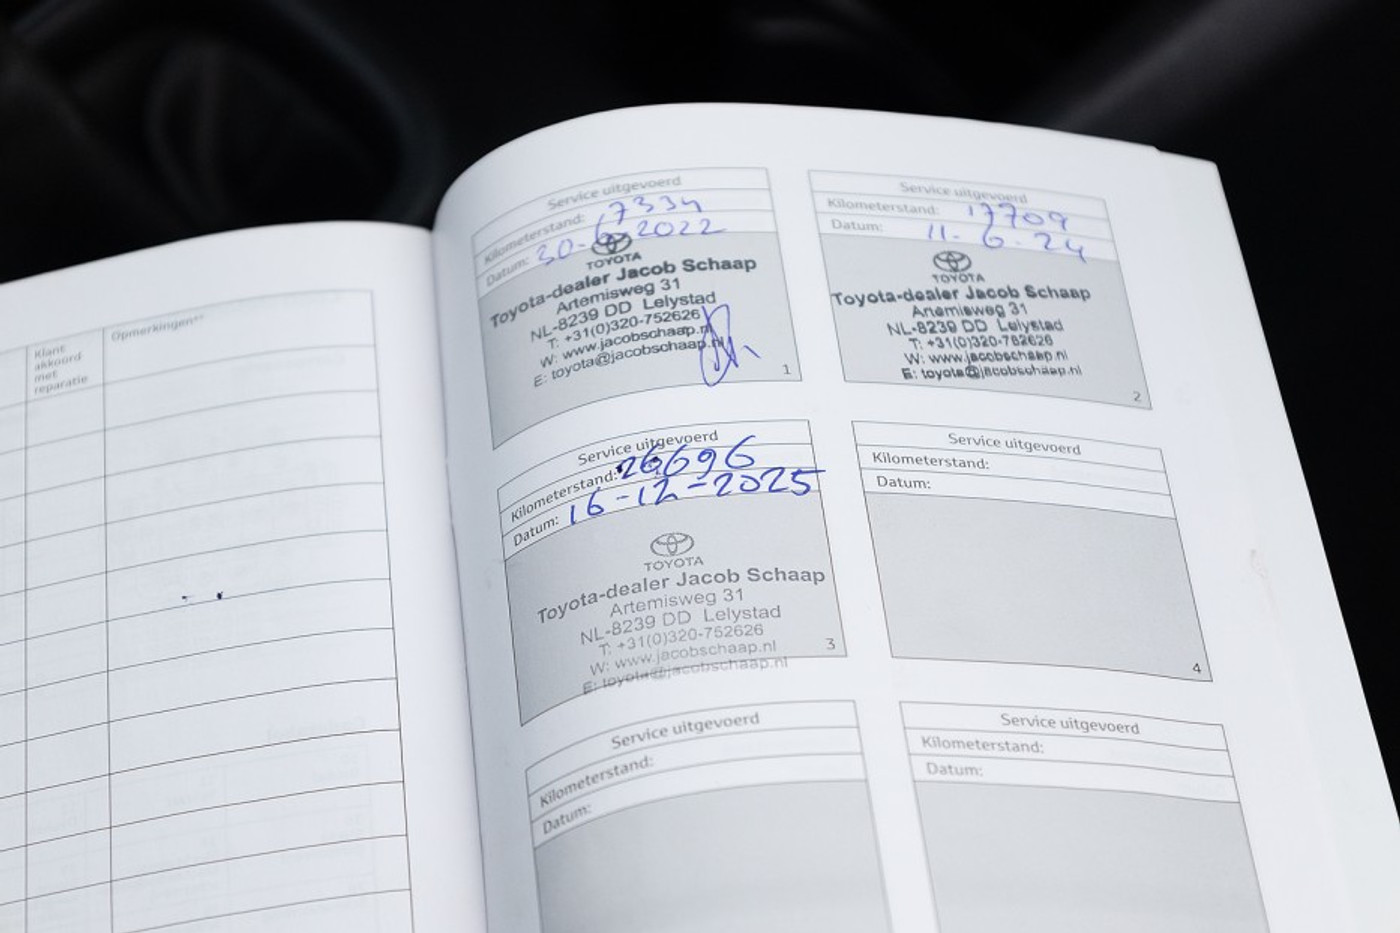 Klant
akkoord
met
reparatie
Opmerkingen**
Service uitgevoerd
Kilometerstand: 17334
Datum: 30-6-2022
TOYOTA
Toyota-dealer Jacob Schaap
Artemisweg 31
NL-8239 DD Lelystad
T: +31(0)320-752626
W: www.jacobschaap.nl
E: toyota@jacobschaap.nl
1
Service uitgevoerd
Kilometerstand: 17709
Datum: 11-6-24
TOYOTA
Toyota-dealer Jacob Schaap
Artemisweg 31
NL-8239 DD Lelystad
T: +31(0)320-752626
W: www.jacobschaap.nl
E: toyota@jacobschaap.nl
2
Service uitgevoerd
Kilometerstand: 26696
Datum: 16-12-2025
TOYOTA
Toyota-dealer Jacob Schaap
Artemisweg 31
NL-8239 DD Lelystad
T: +31(0)320-752626
W: www.jacobschaap.nl
E: toyota@jacobschaap.nl
3
Service uitgevoerd
Kilometerstand:
Datum:
4
Service uitgevoerd
Kilometerstand:
Datum:
Service uitgevoerd
Kilometerstand:
Datum: